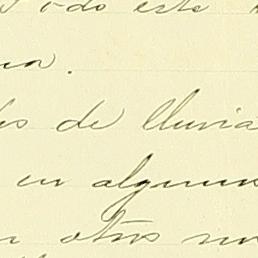 odo este
de lluvia
en algunos
otros